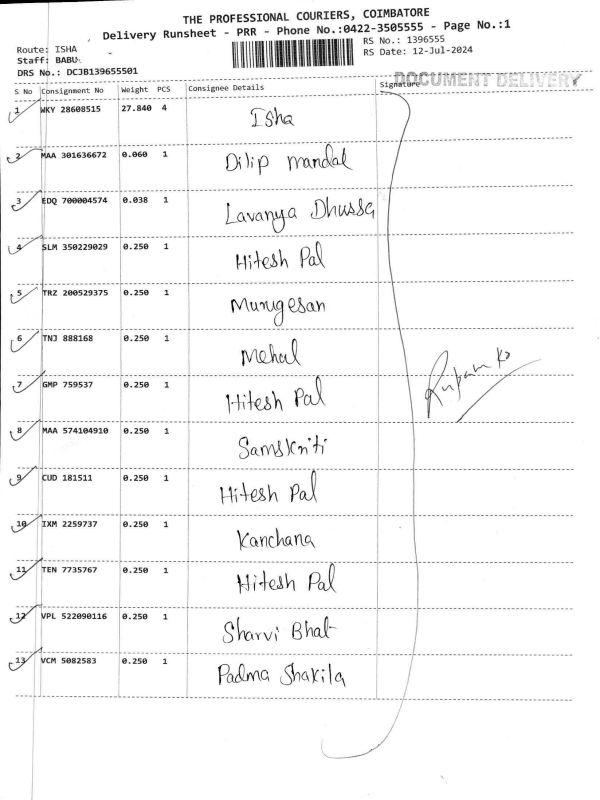 THE PROFESSIONAL COURIERS, COIMBATORE
Delivery Runsheet - PRR - Phone No.:0422-3505555 - Page No.:1
Route: ISHA
RS No.: 1396555
Staff: BABU
RS Date: 12-Jul-2024
DRS No.: DCJB139655501
DOCUMENT DELIVERY
S No Consignment No Weight PCS Consignee Details Signature
1 WKY 28608515 27.840 4 Isha
2 MAA 301636672 0.060 1 Dilip mandal
3 EDQ 700004574 0.038 1 Lavanya Dhussa
4 SLM 350229029 0.250 1 Hitesh Pal
5 TRZ 200529375 0.250 1 Murugesan
6 TNJ 888168 0.250 1 Mehal
7 GMP 759537 0.250 1 Hitesh Pal
8 MAA 574104910 0.250 1 Samskriti
9 CUD 181511 0.250 1 Hitesh Pal
10 IXM 2259737 0.250 1 Kanchana
11 TEN 7735767 0.250 1 Hitesh Pal
12 VPL 522090116 0.250 1 Sharvi Bhat
13 VCM 5082583 0.250 1 Padma Shakila